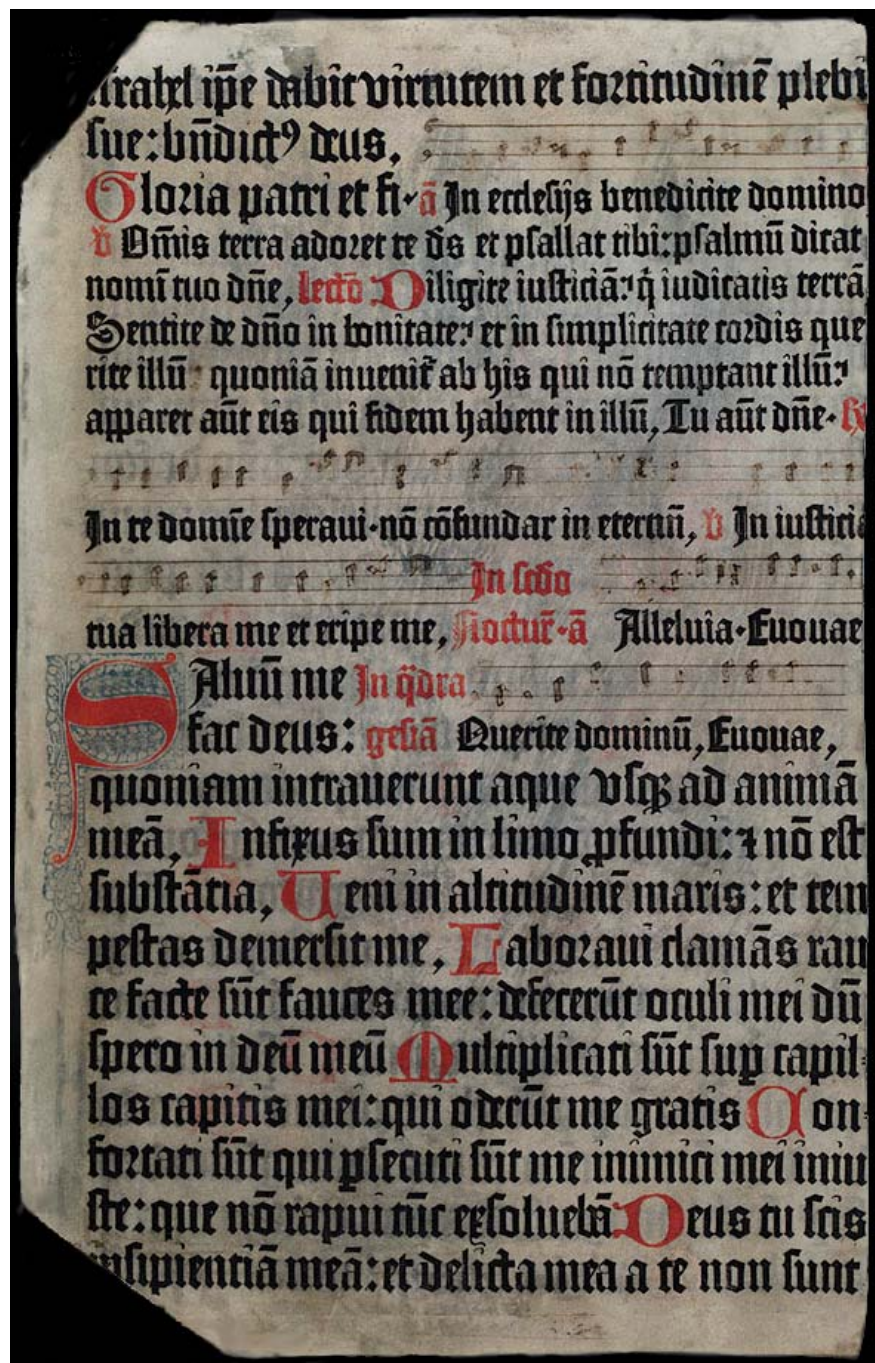 israhel ip̄e dabit virtutem et fortitudinē plebi
sue: bn̄dictꝰ deus.
Gloria patri et fi· ā In ecclesijs benedicite domino
v Om̄is terra adoret te ds̄ et psallat tibi: psalmū dicat
nomī tuo dn̄e, lectō Diligite iusticiā: q̄ iudicatis terrā
Sentite de dn̄o in bonitate: et in simplicitate cordis que
rite illū quoniā inuenit̄ ab his qui nō temptant illū:
apparet aūt eis qui fidem habent in illū, Tu aūt dn̄e· R
In te domīe speraui· nō cōfundar in eternū, v In iusticia
In scd̄o
tua libera me et eripe me, Noctur̄· ā Alleluia· Euouae
Saluū me In q̄dra
fac deus: gesiā Querite dominū, Euouae,
quoniam intrauerunt aque vsqꝫ ad animā
meā, Infixus sum in limo ꝓfundi: ⁊ nō est
substātia, Ueni in altitudinē maris: et tem
pestas demersit me, Laboraui clamās rau
ce facte sūt fauces mee: defecerūt oculi mei dū
spero in deū meū Multiplicati sūt suꝑ capil
los capitis mei: qui oderūt me gratis Con
fortati sūt qui ꝑsecuti sūt me inimici mei iniu
ste: que nō rapui tūc exsoluebā. Deus tu scis
insipientiā meā: et delicta mea a te non sunt